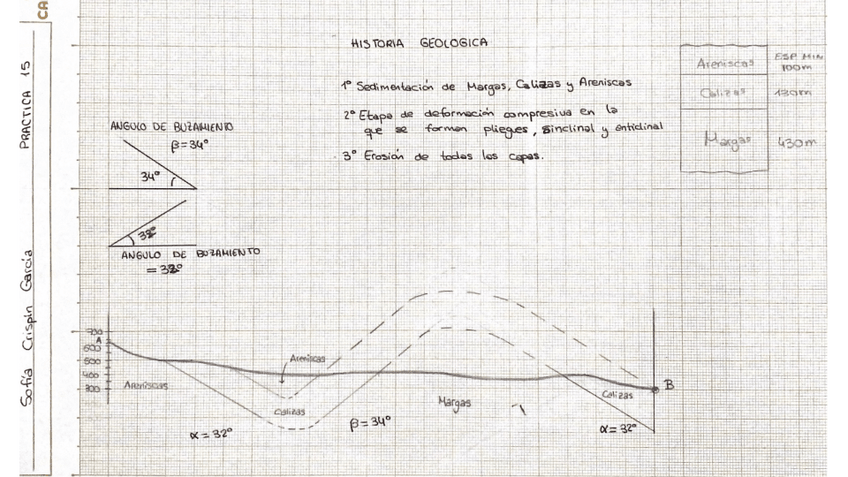 CA
PRACTICA 15
Sofía Crispín García
HISTORIA GEOLOGICA
1º Sedimentación de Margas, Calizas y Areniscas
2º Etapa de deformación compresiva en la
que se forman pliegues, sinclinal y anticlinal
3º Erosión de todas las capas.
Areniscas
ESP MIN
100m
Calizas
130m
Margas
430m
ANGULO DE BUZAMIENTO
β=34º
34º
32º
ANGULO DE BUZAMIENTO
=32º
700
A
600
500
400
300
Areniscas
Areniscas
Calizas
Margas
Calizas
B
α=32º
β=34º
α=32º